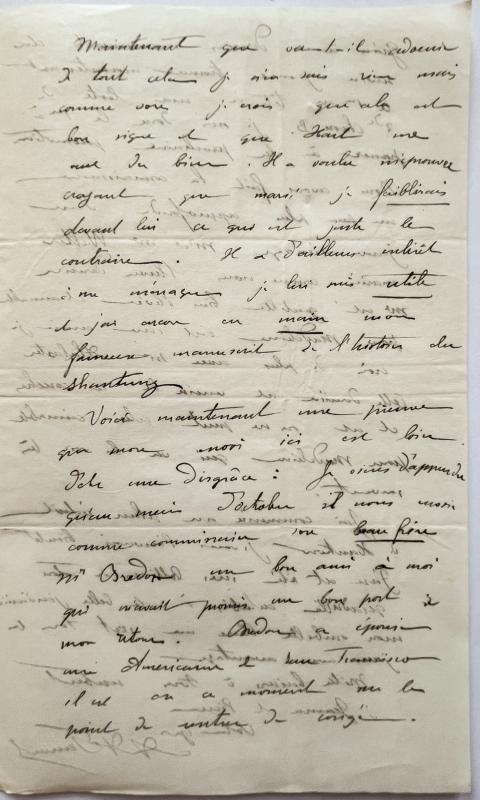 Maintenant que va-t-il advenir
de tout cela, je n'en sais rien mais
comme vous, je crois que cela est
bon signe et que Hart me
veut du bien. Il a voulu m'éprouver
croyant que mari, je faiblirais
devant lui ce qui est juste le
contraire. Il a d'ailleurs intérêt
à me ménager je lui suis utile
et j'ai encore en main mon
fameux manuscrit de l'histoire du
Shantung
Voici maintenant une preuve
que mon envoi ici est loin
d'être une disgrâce : Je viens d'apprendre
qu'au mois d'octobre il nous
comme commissaire son beau frère
Mr Bredon un bon ami à moi
qui m'avait promis un bon port à
mon retour. Bredon a épousé
une Américaine de San Francisco
il est en ce moment sur le
point de rentrer de congé.